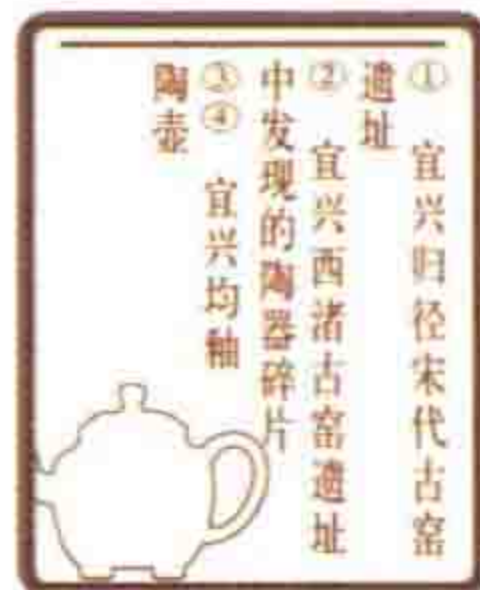 ① 宜兴归径宋代古窑
遗址
② 宜兴西渚古窑遗址
中发现的陶器碎片
③④ 宜兴均釉
陶壶